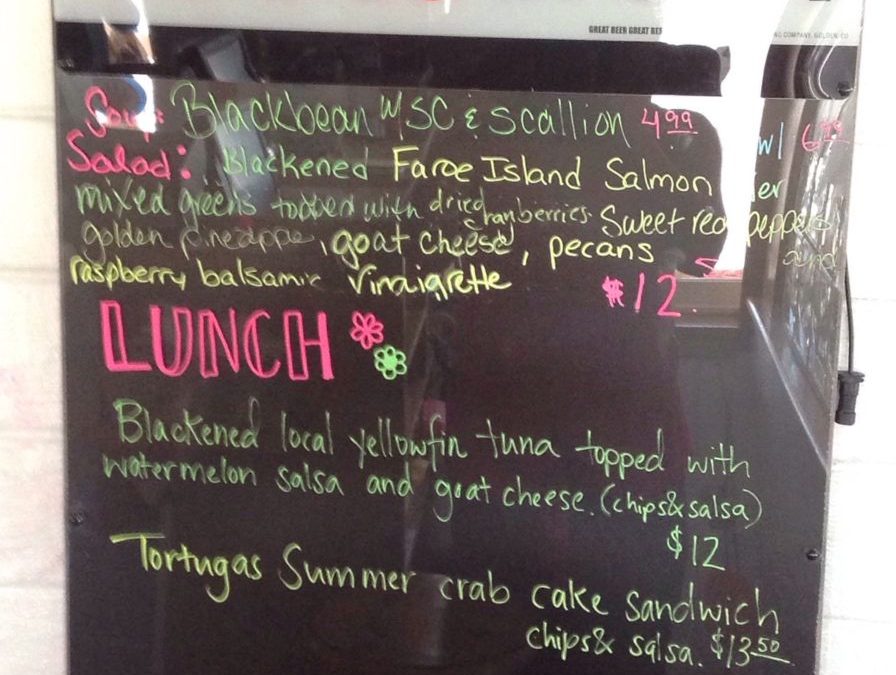 GREAT BEER GREAT BEE
NG COMPANY, GOLDEN, CO
Soup: Blackbean w/ SC & scallion 4.99
w/ 6.99
Salad: Blackened Faroe Island Salmon
mixed greens topped with dried cranberries Sweet red peppers
golden pineapple, goat cheese, pecans and
raspberry balsamic Vinaigrette $12.
LUNCH
Blackened local yellowfin tuna topped with
watermelon salsa and goat cheese. (chips & salsa)
$12
Tortugas Summer crab cake sandwich
chips & salsa. $13.50